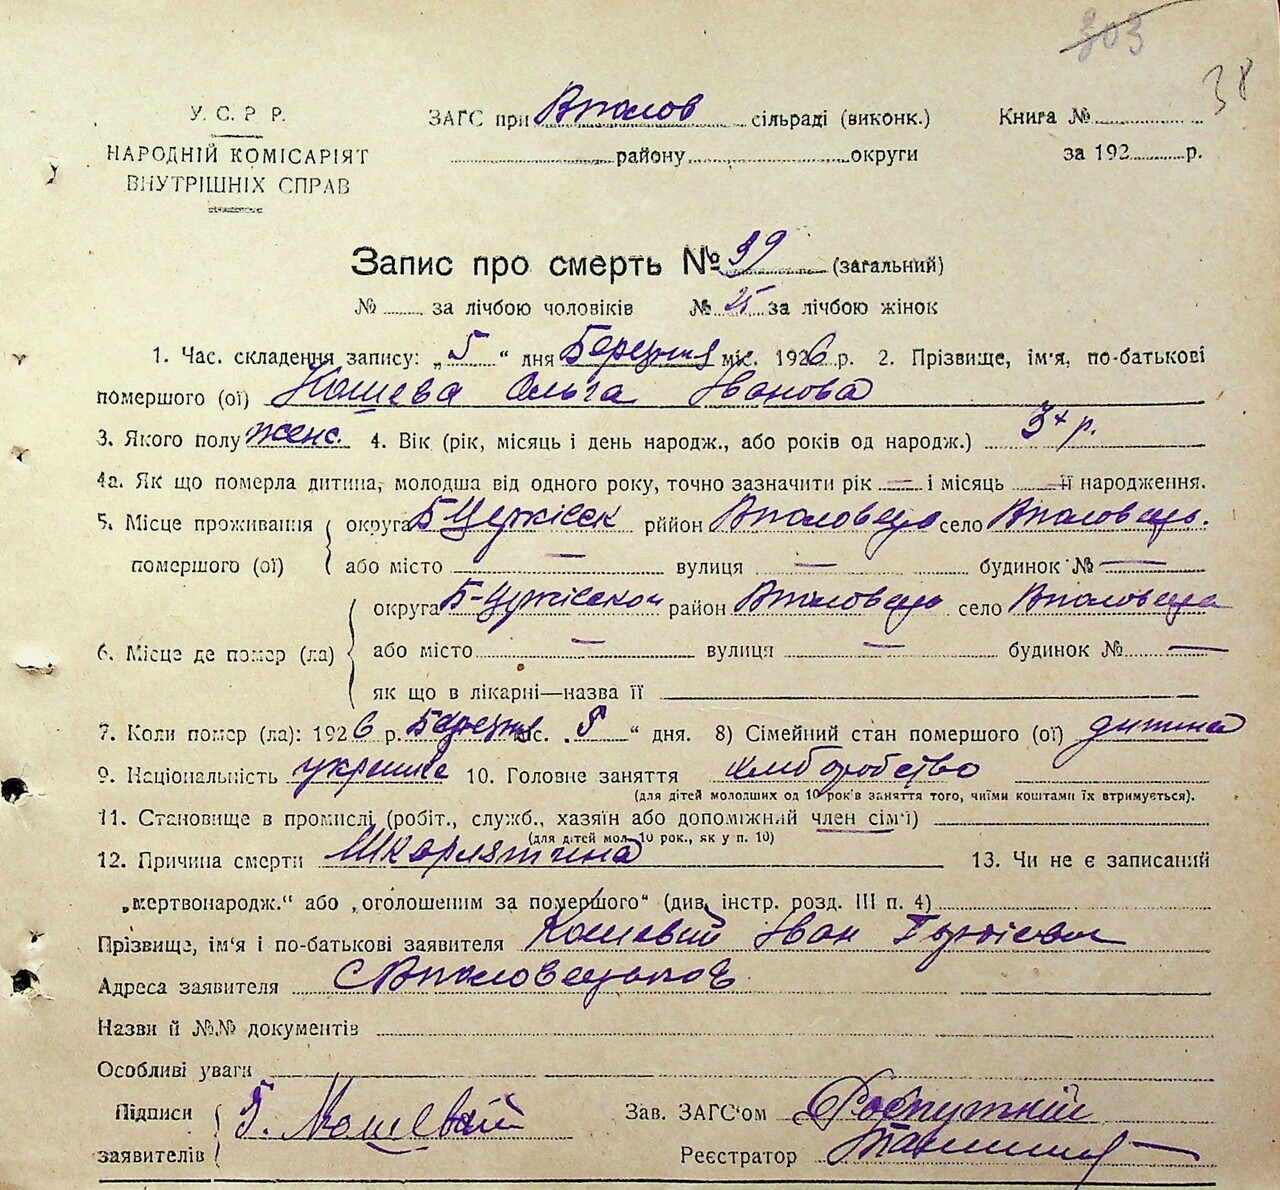 303
38
У. С. Р. Р.
НАРОДНІЙ КОМІСАРІЯТ
ВНУТРІШНІХ СПРАВ
ЗАГС при сільраді (виконк.)
району округи
Книга №
за 192 р.
Запис про смерть № 39 (загальний)
№ за лічбою чоловіків № 25 за лічбою жінок
1. Час. складення запису: „5“ дня Березня міс. 1926 р. 2. Прізвище, ім'я, по-батькові
помершого (ої) Кошева Ольга Іванова
3. Якого полу женс. 4. Вік (рік, місяць і день народж., або років од народж.) 3х р.
4а. Як що померла дитина, молодша від одного року, точно зазначити рік — і місяць — її народження.
5. Місце проживання округа Б-Церківск рйион село
помершого (ої) або місто — вулиця — будинок № —
округа район село
6. Місце де помер (ла) або місто — вулиця — будинок № —
як що в лікарні—назва її
7. Коли помер (ла): 1926 р. Березня міс. „5“ дня. 8) Сімейний стан помершого (ої) дитина
9. Національність 10. Головне заняття хліборобство
(для дітей молодших од 10 років заняття того, чиїми коштами їх втримується).
11. Становище в промислі (робіт., служб., хазяїн або допоміжний член сім'ї)
(для дітей мол. 10 рок., як у п. 10)
12. Причина смерти Шкарлятина 13. Чи не є записаний
„мертвонародж.“ або „оголошеним за помершого“ (див. інстр. розд. III п. 4)
Прізвище, ім'я і по-батькові заявителя Кошевий Іван
Адреса заявителя
Назви й №№ документів
Особливі уваги
Підписи заявителів Кошевий
Зав. ЗАГС'ом
Реєстратор